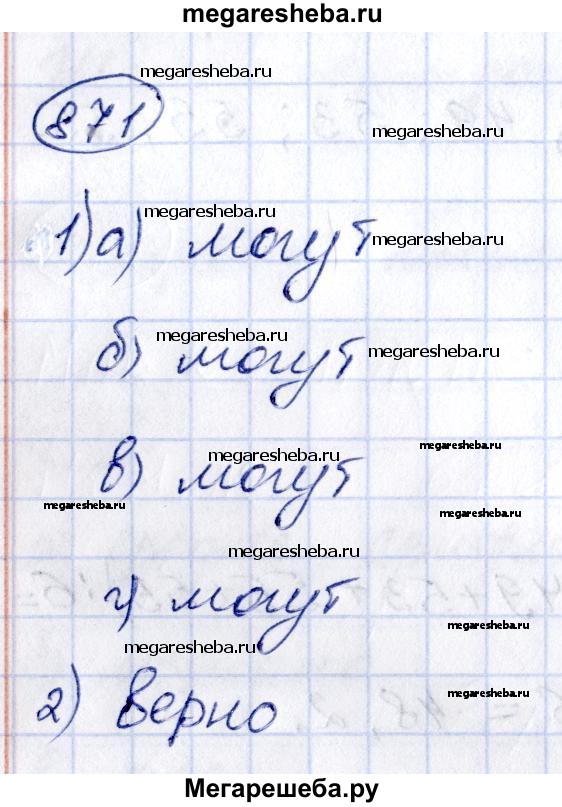 megaresheba.ru
megaresheba.ru
871
megaresheba.ru
megaresheba.ru
1) а) могут
megaresheba.ru
megaresheba.ru
б) могут
megaresheba.ru
megaresheba.ru
megaresheba.ru
в) могут
megaresheba.ru
megaresheba.ru
megaresheba.ru
г) могут
megaresheba.ru
megaresheba.ru
megaresheba.ru
2) верно
Мегарешеба.ру